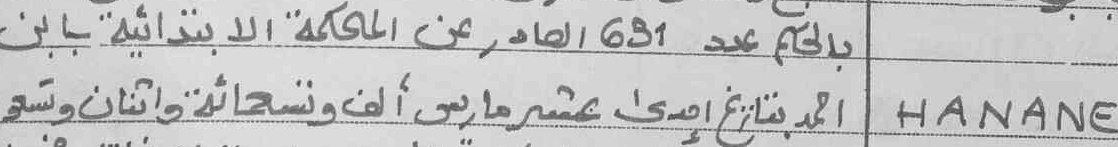 بالحكم عدد 691 الصادر عن المحكمة الابتدائية بابن
احمد بتاريخ إحدى عشر مارس ألف وتسعمائة واثنان وتسعو
HANANE